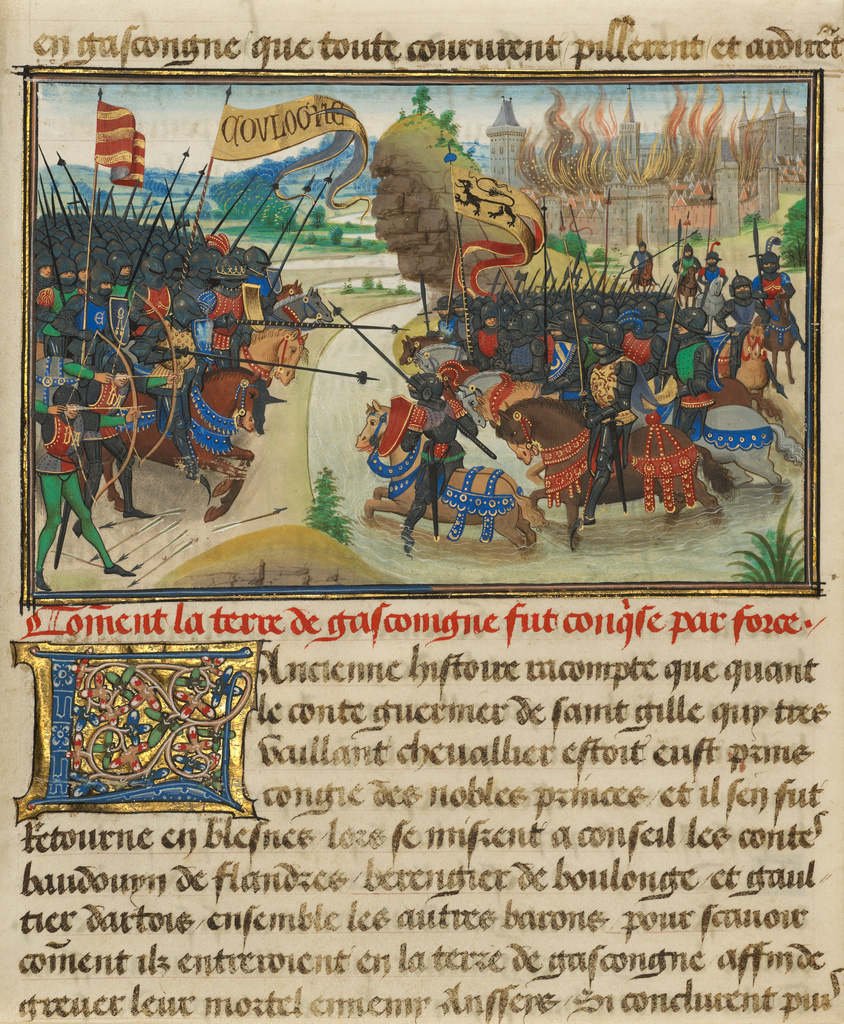 en gascongne que toute coururent / pillerent / et ardirẽt
COVLOGNE
Com̃ent la terre de gascoingne fut conq̃se par force .
L'Ancienne histoire racompte que quant
le conte guermer de saint gille quy tres
vaillant chevallier estoit eust prins
congie des nobles princes / et il sen fut
Retourne en blesnes / lors se misrent a conseil les contes
baudouyn de flandres / berengier de boulonge / et gaul /
tier dartois / ensemble les autres barons pour scavoir
com̃ent ilz entreroient en la terre de gascongne affin de
grever leur mortel ennemy Anssers / Si conclurent puis